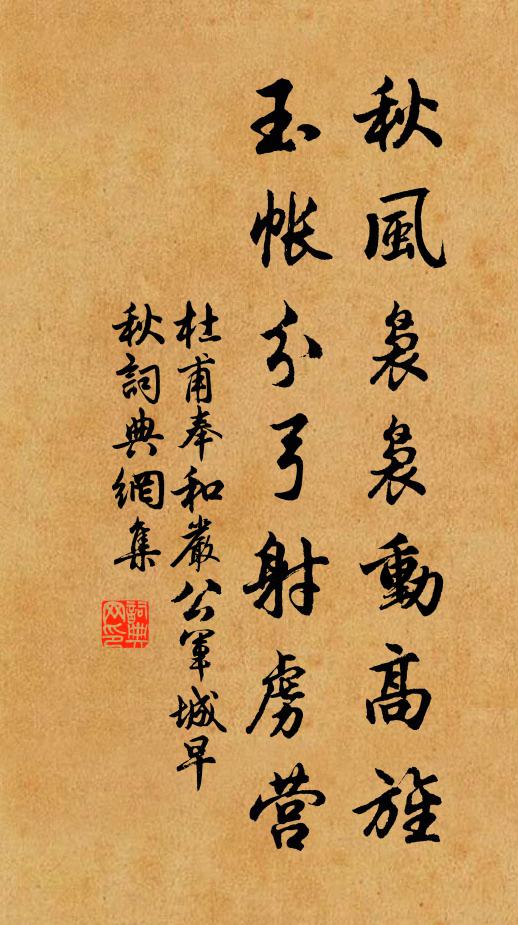 秋風裊裊動高旌
玉帳分弓射虜营
杜甫奉和嚴公軍城早
秋詞典網集
詞典
网印